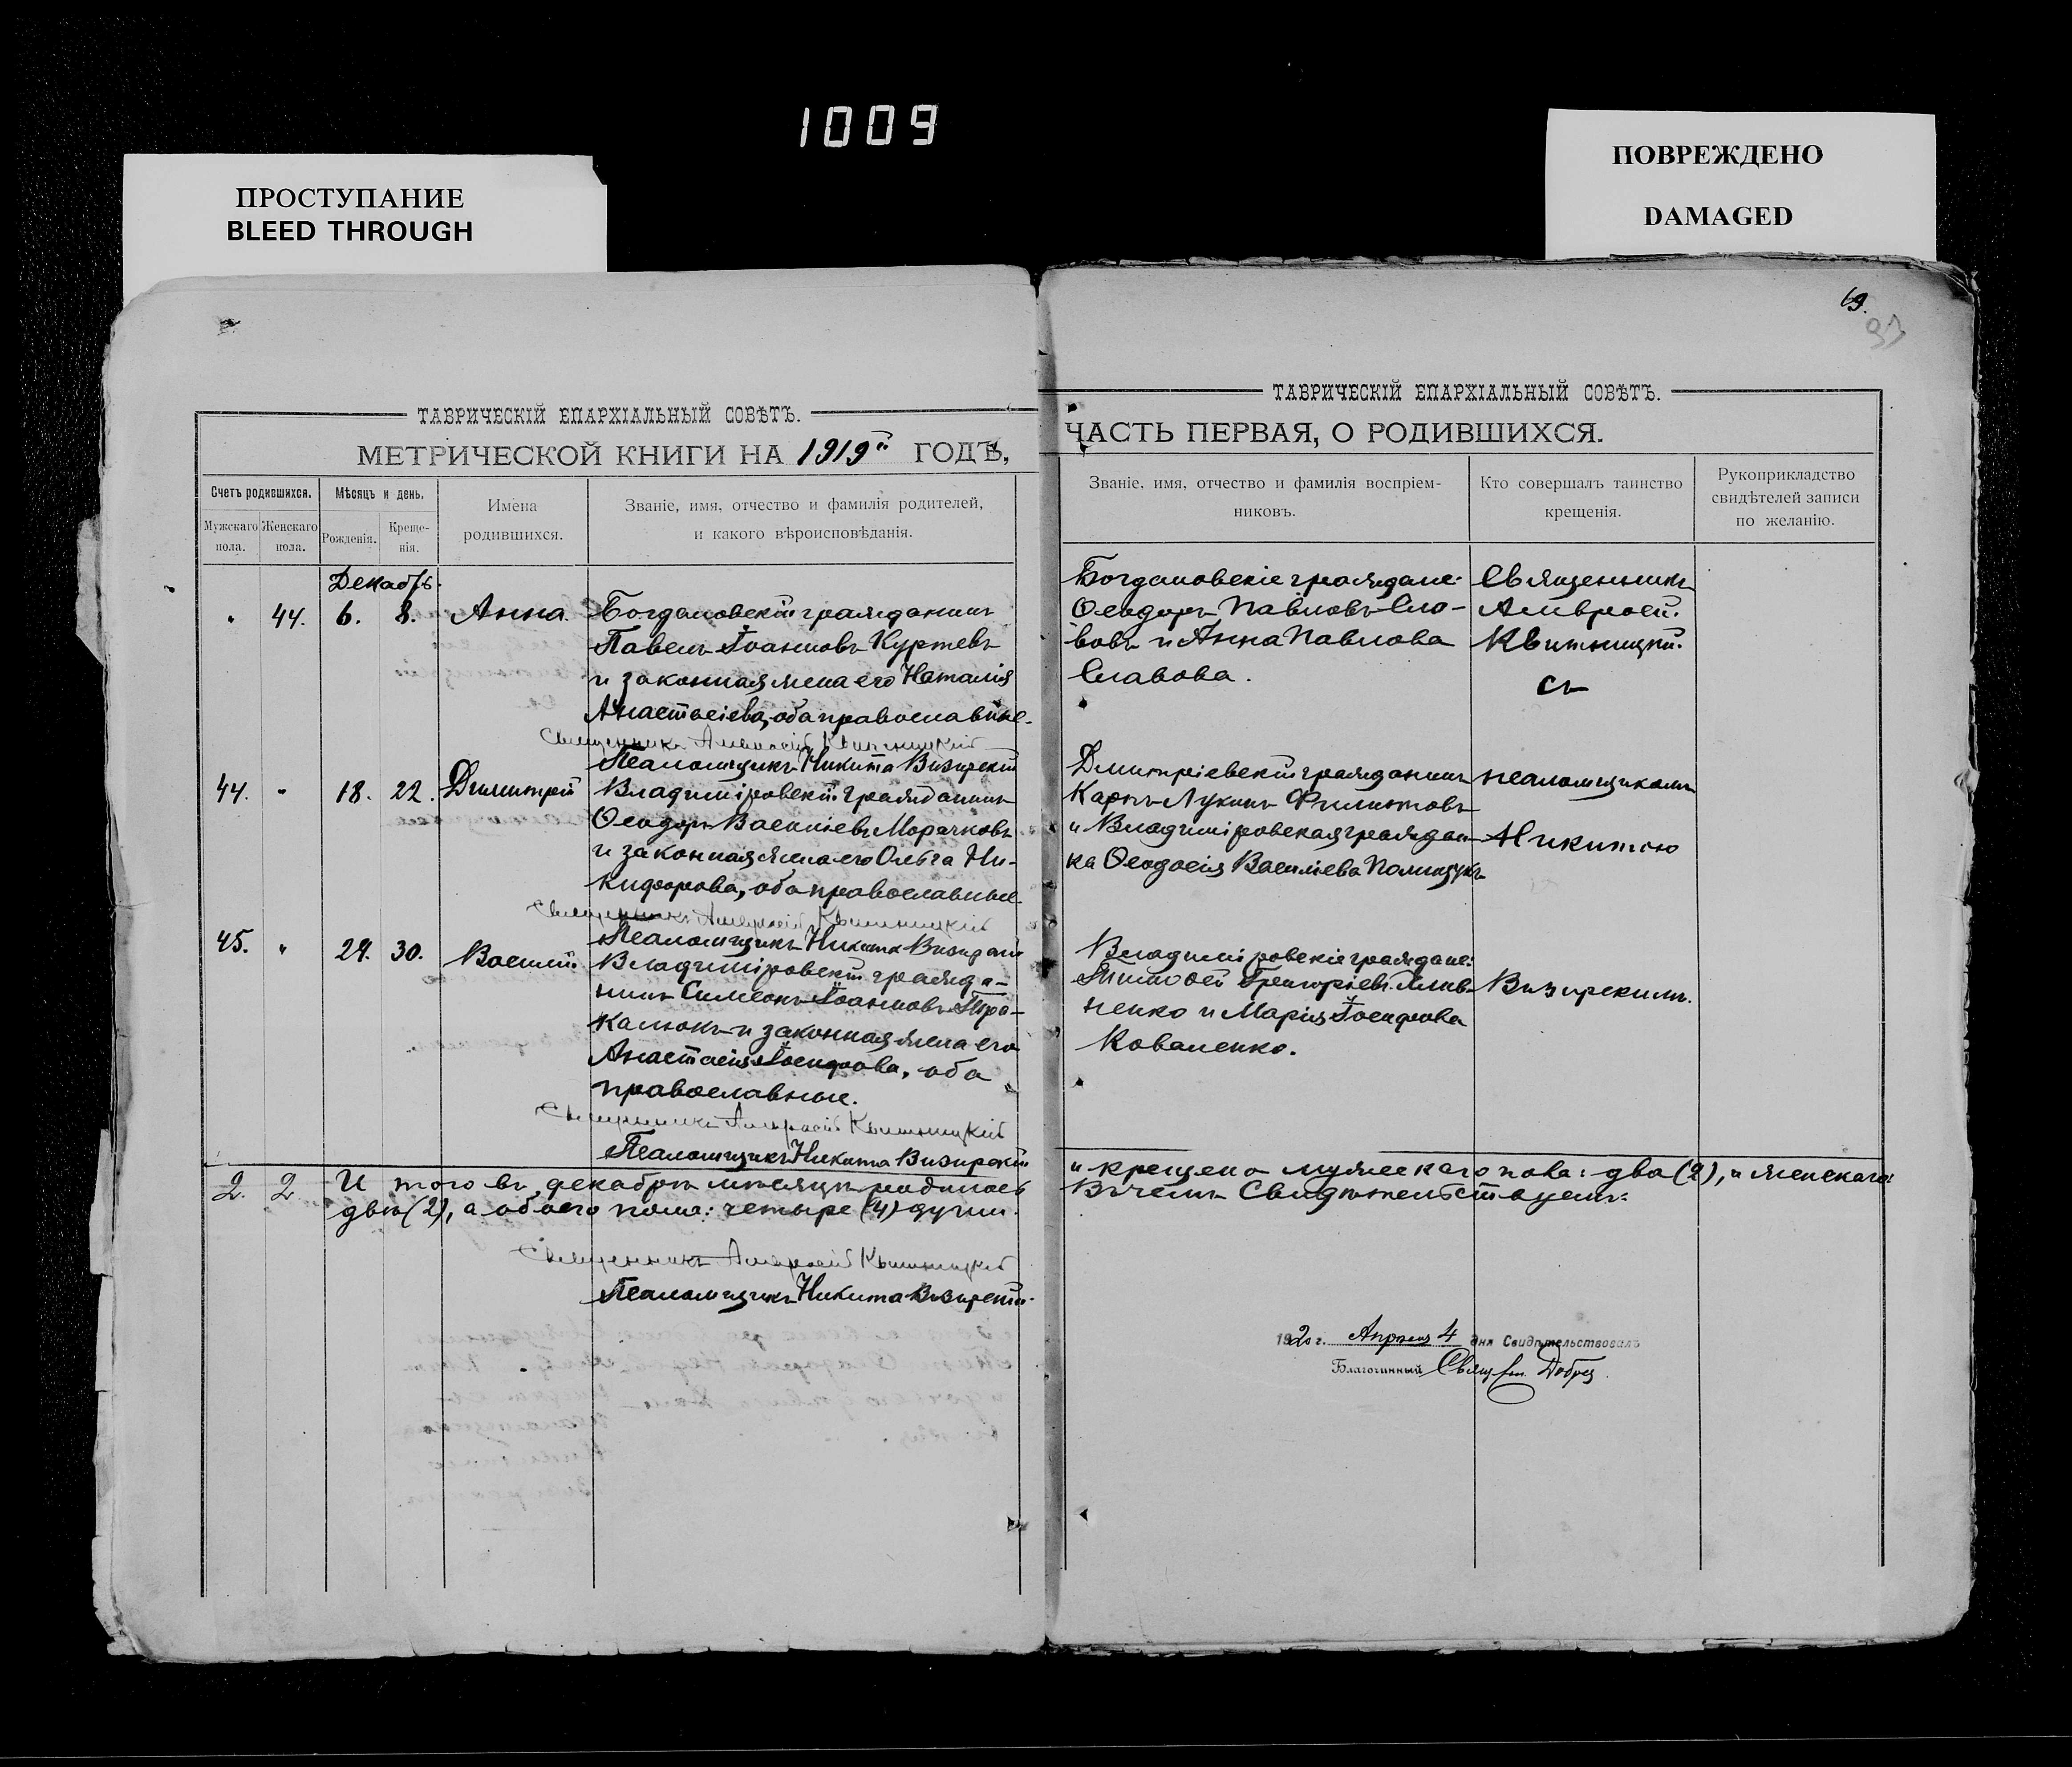 1009
ПРОСТУПАНИЕ
BLEED THROUGH
ПОВРЕЖДЕНО
DAMAGED
ТАВРИЧЕСКІЙ ЕПАРХІАЛЬНЫЙ СОВѢТЪ.
МЕТРИЧЕСКОЙ КНИГИ НА 1919й ГОДЪ,
Счетъ родившихся.
Мѣсяцъ и день.
Мужскаго пола.
Женскаго пола.
Рожденія.
Креще-
нія.
Имена
родившихся.
Званіе, имя, отчество и фамилія родителей,
и какого вѣроисповѣданія.
Декабрь.
44. 6. 8. Анна. Богдановскій гражданинъ
Павелъ Іоанновъ Куртевъ
и законная жена его Наталія
Анастасіева, оба православные.
Священникъ Амвросій Квитницкій
Псаломщикъ Никита Визирскій
44. 18. 22. Димитрій Владиміровскій гражданинъ
Ѳеодоръ Васильевъ Морачковъ
и законная жена его Ольга Ни-
кифорова, оба православные.
Священникъ Амвросій Квитницкій
Псаломщикъ Никита Визирскій
45. 29. 30. Василій. Владиміровскій гражда-
нинъ Симеонъ Іоанновъ
и законная жена его
Анастасія Іосифова, оба
православные.
Священникъ Амвросій Квитницкій
Псаломщикъ Никита Визирскій
2. 2. Итого въ декабрѣ мѣсяцѣ родилось
двѣ (2), а обоего пола: четыре (4) души.
Священникъ Амвросій Квитницкій
Псаломщикъ Никита Визирскій
69.
ТАВРИЧЕСКІЙ ЕПАРХІАЛЬНЫЙ СОВѢТЪ.
ЧАСТЬ ПЕРВАЯ, О РОДИВШИХСЯ.
Званіе, имя, отчество и фамилія воспріем-
никовъ.
Кто совершалъ таинство
крещенія.
Рукоприкладство
свидѣтелей записи
по желанію.
Богдановскіе граждане: Священникъ
Ѳеодоръ Павловъ Сла- Амвросій
вовъ и Анна Павлова Квитницкій
Славова. съ
Дмитріевскій гражданинъ псаломщикомъ
Карпъ Лукинъ Филиповъ
и Владиміровская граждан- Никитою
ка Ѳеодосія Васильева Полищукъ
Владиміровскіе граждане:
Тимоѳей Григоріевъ Визирскимъ.
ненко и Марія Іосифова
Коваленко.
и крещено мужескаго пола: два (2), и женскаго:
Въ чемъ Свидѣтельствуемъ:
1920 г. Апрѣля 4 дня Свидѣтельствовалъ
Благочинный Свящ.